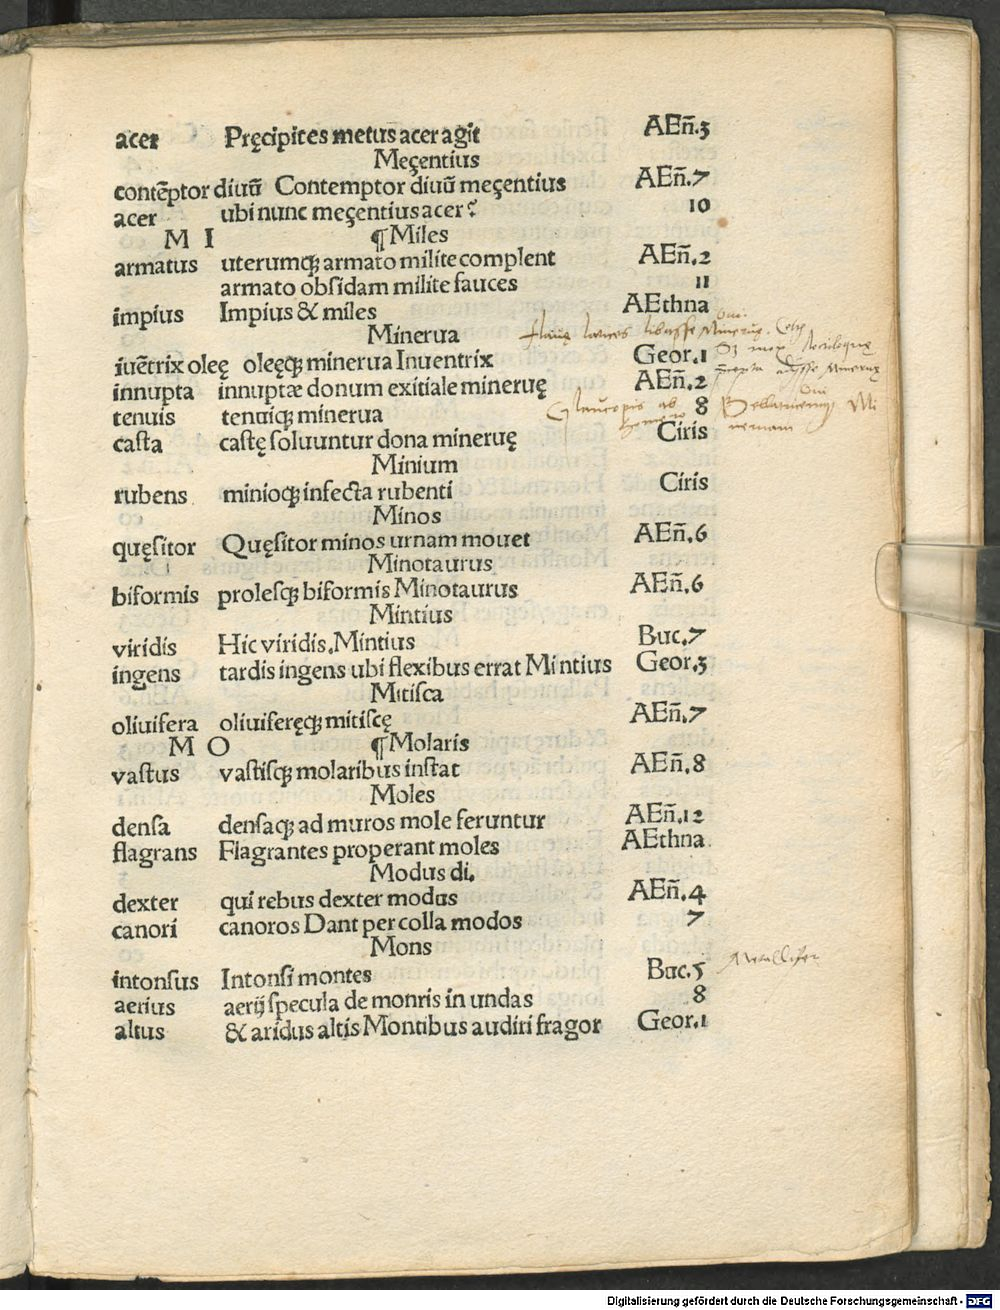 acer Pręcipites metus acer agit AEñ.3
Meçentius
contẽptor diuũ Contemptor diuũ meçentius AEñ.7
acer ubi nunc meçentius acer? 10
M I ¶Miles
armatus uterumqꝫ armato milite complent AEñ.2
armato obsidam milite fauces 11
impius Impius & miles AEthna
Minerua
iuẽtrix oleę oleęqꝫ minerua Inuentrix Geor.1
innupta innuptæ donum exitiale mineruę AEñ.2
tenuis tenuiqꝫ minerua 8
casta castę soluuntur dona mineruę Ciris
Minium
rubens minioqꝫ infecta rubenti Ciris
Minos
quęsitor Quęsitor minos urnam mouet AEñ.6
Minotaurus
biformis prolesqꝫ biformis Minotaurus AEñ.6
Mintius
viridis Hic viridis.Mintius Buc.7
ingens tardis ingens ubi flexibus errat Mintius Geor.3
Mitisca
oliuifera oliuiferęqꝫ mitiscę AEñ.7
M O ¶Molaris
vastus vastisqꝫ molaribus instat AEñ.8
Moles
densa densaqꝫ ad muros mole feruntur AEñ.12
flagrans Flagrantes properant moles AEthna
Modus di.
dexter qui rebus dexter modus AEñ.4
canori canoros Dant per colla modos 7
Mons
intonsus Intonsi montes Buc.5
Metallifer
aerius aerij specula de monris in undas 8
altus & aridus altis Montibus audiri fragor Geor.1
Digitalisierung gefördert durch die Deutsche Forschungsgemeinschaft - DFG